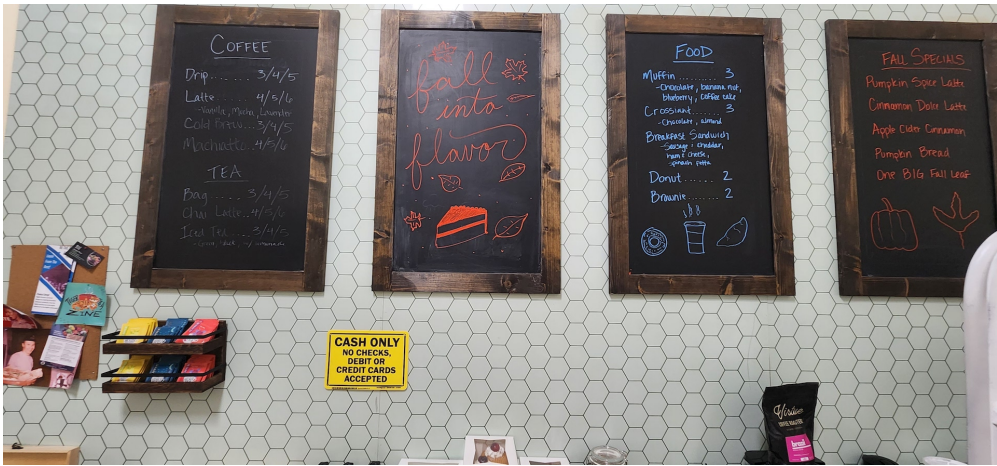 COFFEE
Drip...... 3/4/5
Latte..... 4/5/6
-Vanilla, Mocha, Lavender
Cold Brew...3/4/5
Machiatto...4/5/6
TEA
Bag.... 3/4/5
Chai Latte..4/5/6
Iced Tea....3/4/5
fall
into
flavor
FOOD
Muffin.......... 3
-Chocolate, banana nut,
blueberry, coffee cake
Crossiant....... 3
-Chocolate, almond
Breakfast Sandwich
-Sausage & cheddar,
ham & cheese,
spinach fetta
Donut....... 2
Brownie..... 2
FALL SPECIALS
Pumpkin Spice Latte
Cinnamon Dolce Latte
Apple Cider Cinnamon
Pumpkin Bread
One BIG Fall Leaf
ZINE
CASH ONLY
NO CHECKS,
DEBIT OR
CREDIT CARDS
ACCEPTED
Virtue
COFFEE ROASTERS
brazil